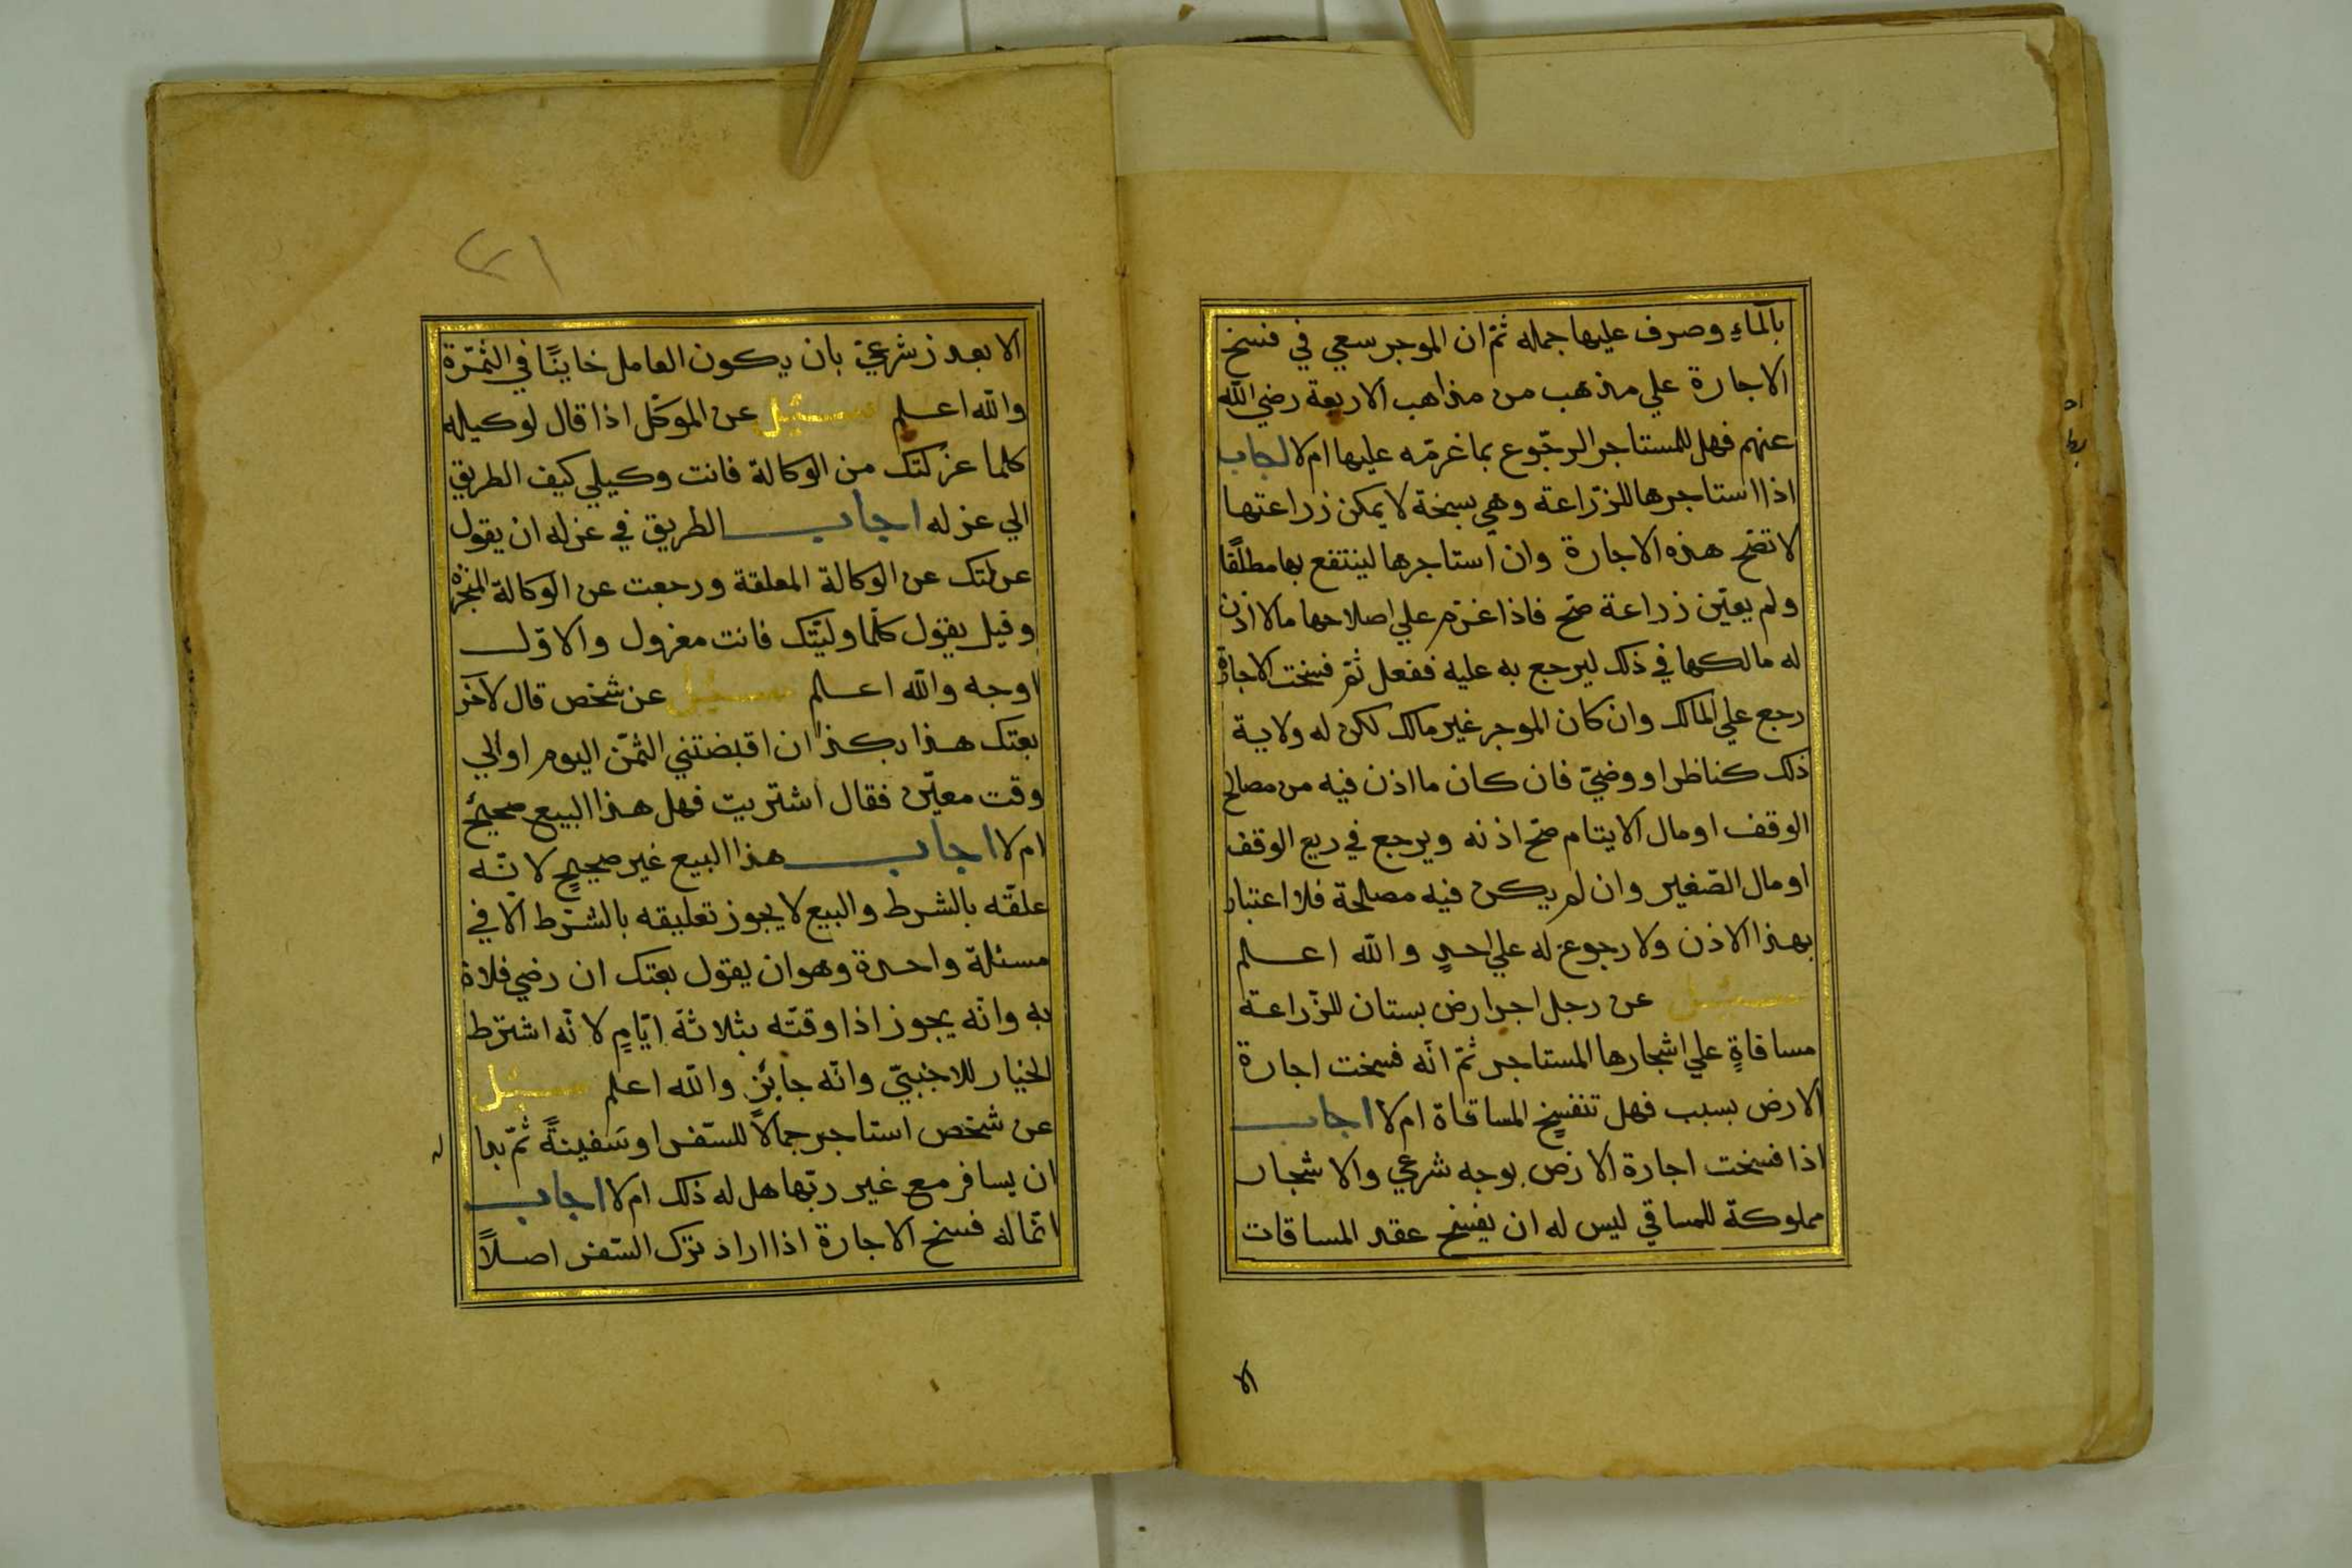 بالمآءِ وصرف عليها جمله ثمّ ان الموجر سعي في فسخ
الاجارة علي مذهب من مذاهب الاربعة رضي الله
عنهم فهل للمستاجر الرجّوع بما غرمّه عليها ام لا اجاب
اذا استاجرها للزّراعة وهي سبخة لا يمكن زراعتها
لا تصّح هذه الاجارة وان استاجرها لينتفع بها مطلقًا
ولم يعيّن زراعة صحّ فاذا غرم علي اصلاحها مالا اذن
له مالكها في ذلك ليرجع به عليه ففعل ثمّ فسخت الاجارة
رجع علي المالك وان كان الموجر غير مالك لكن له ولاية
ذلك كناظر او وصيّ فان كان ما اذن فيه من مصالح
الوقف او مال الايتام صحّ اذنه ويرجع في ريع الوقف
او مال الصّغير وان لم يكن فيه مصالحة فلا اعتبار
بهذا الاذن ولا رجوع له علي احدٍ والله اعلم
سئل عن رجل اجر ارض بستان للزّراعة
مساقاةٍ علي اشجارها المستاجر ثمّ انّه فسخت اجارة
الارض بسبب فهل تنفسخ المساقاة ام لا اجاب
اذا فسخت اجارة الارض بوجه شرعي والاشجار
مملوكة للمساقي ليس له ان يفسخ عقد المساقات
الا
٢١
الا بعذر شرعيّ بان يكون العامل خاينًا في الثمّرة
والله اعلم سئل عن الموكّل اذا قال لوكيله
كلما عزلتك من الوكالة فانت وكيلي كيف الطريق
الي عزله اجاب الطريق في عزله ان يقول
عزلتك عن الوكالة المعلقة ورجعت عن الوكالة المنجزة
وقيل يقول كلّما وليّتك فانت معزول والاوّل
اوجه والله اعلم سئل عن شخص قال لآخر
بعتك هذا بكذا ان اقبضتني الثمّن اليوم او الي
وقت معيّن فقال اشتريت فهل هذا البيع صحيح
ام لا اجاب هذا البيع غير صحيحٍ لانّه
علقّه بالشرط والبيع لا يجوز تعليقه بالشرط الا في
مسئلة واحدة وهو ان يقول بعتك ان رضي فلان
به وانّه يجوز اذا وقتّه بثلاثة ايّامٍ لانّه اشترط
الخيار للاجنبيّ وانّه جايز والله اعلم سئل
عن شخص استاجر جمالاً للسّفر او سَفينةً ثمّ بدا
له
ان يسافر مع غير ربّها هل له ذلك ام لا اجاب
انّما له فسخ الاجارة اذا اراد ترك السّفر اصلاً